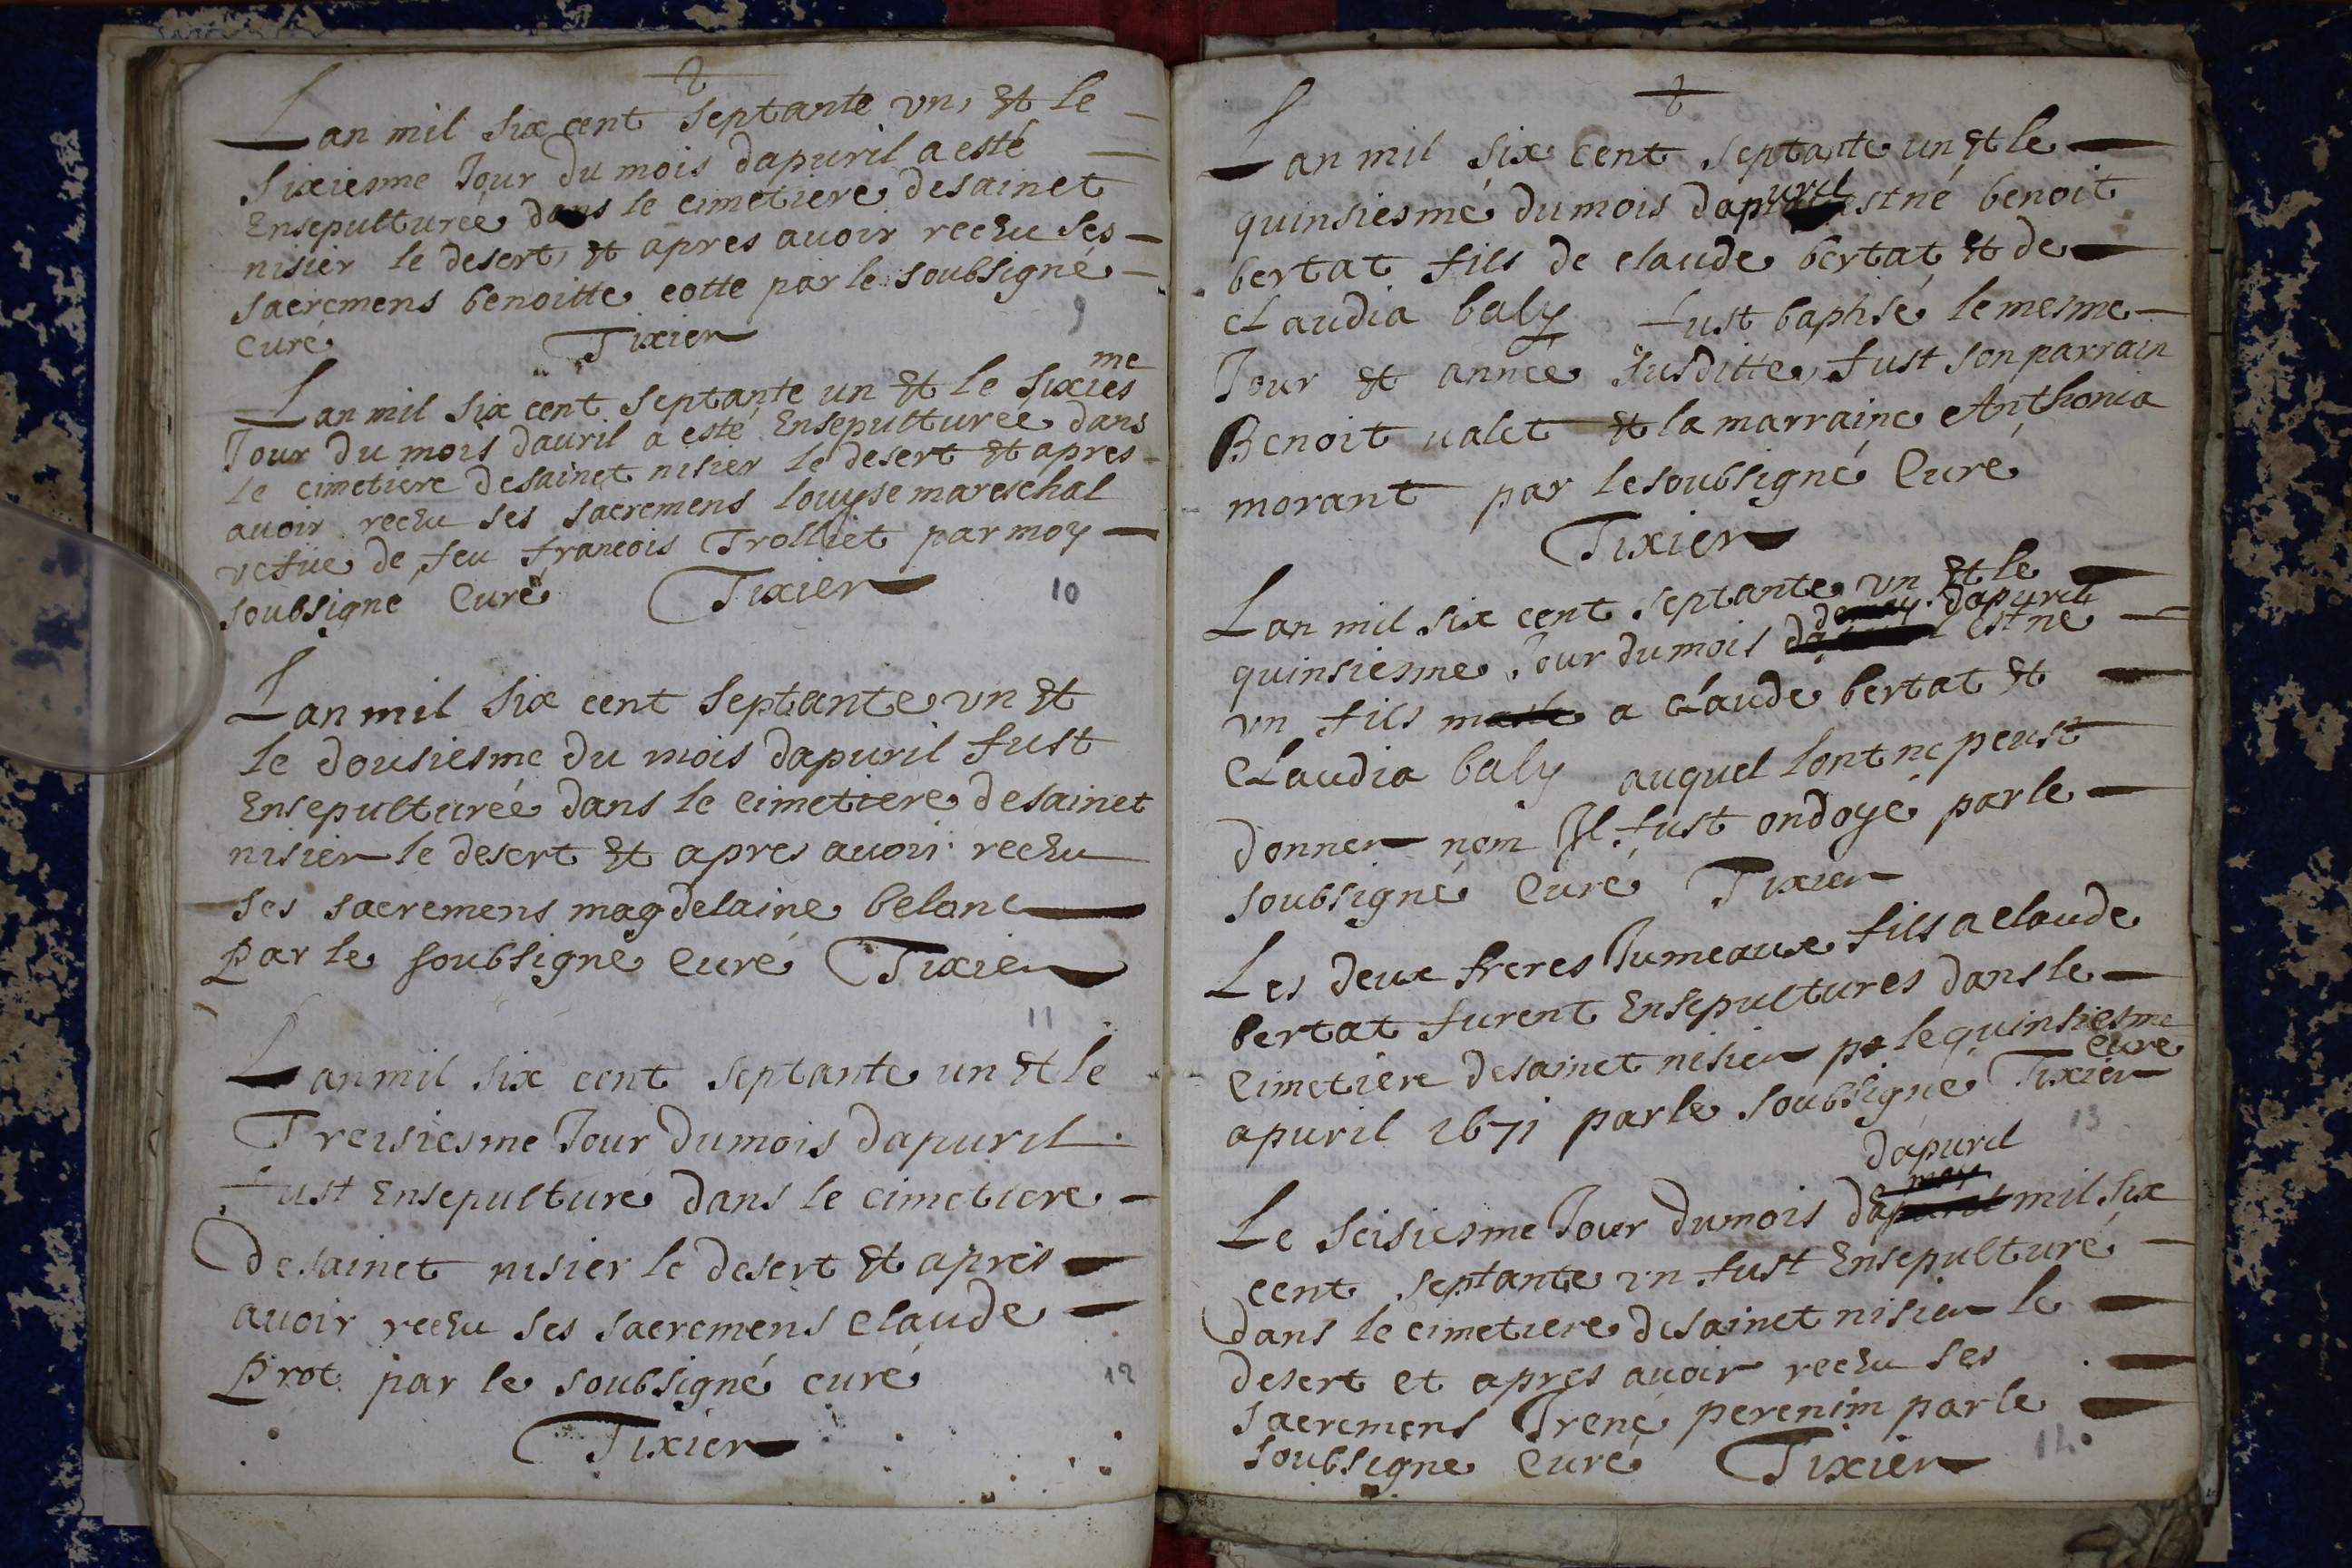 Lan mil six cent septante vn, et le
sixiesme Jour du mois dapuril a esté
Ensepulturée dans le cimetiere desainct
nisier le desert, et apres auoir recehu ses
sacremens benoitte cotte par le soubsigné
Curé Tixier
9
Lan mil six cent septante un et le sixiesme
Jour du mois dauril a esté Ensepulturée dans
le cimetiere desainct nisier le desert et apres
auoir recehu ses sacremens louyse mareschal
vefue de feu francois Trolliet par moy
soubsigné Curé Tixier
10
Lan mil six cent septante vn et
le dousiesme du mois dapuril fust
Ensepulturéé dans le cimetiere desainct
nisier le desert et apres auoir recehu
ses sacremens magdelaine belanc
Par le soubsigné Curé Tixier
11
Lan mil six cent septante un et le
Treisiesme Jour dumois dapuril
fust Ensepulturé dans le cimetiere
desainct nisier le desert et apres
auoir recehu ses sacremens Claude
Prot par le soubsigné curé
12
Tixier
Lan mil six Cent septante un et le
quinsiesme dumois dapuril est né benoit
bertat fils de claude bertat et de
Claudia baly fust baptisé le mesme
Jour et année susditte, fust son parrain
Benoit ualet et la marraine Anthonia
morant par lesoubsigné Curé
Tixier
Lan mil six cent septante vn et le
quinsiesme Jour dumois dapuril est né
vn fils masle a claude bertat et
Claudia baly auquel lont ne peust
donner nom Il fust ondoyé par le
soubsigné Curé Tixier
Les deux freres Jumeaux fils a claude
bertat furent Ensepultures dans le
Cimetiere desainct nisier le quinsiesme
apuril 1671 par le soubsigné Curé Tixier
13
Le seisiesme Jour dumois dapuril mil six
cent septante vn fust Ensepulturé
dans le cimetiere desainct nisier le
desert et apres auoir recehu ses
sacremens Irené perenim par le
soubsigné Curé Tixier
14